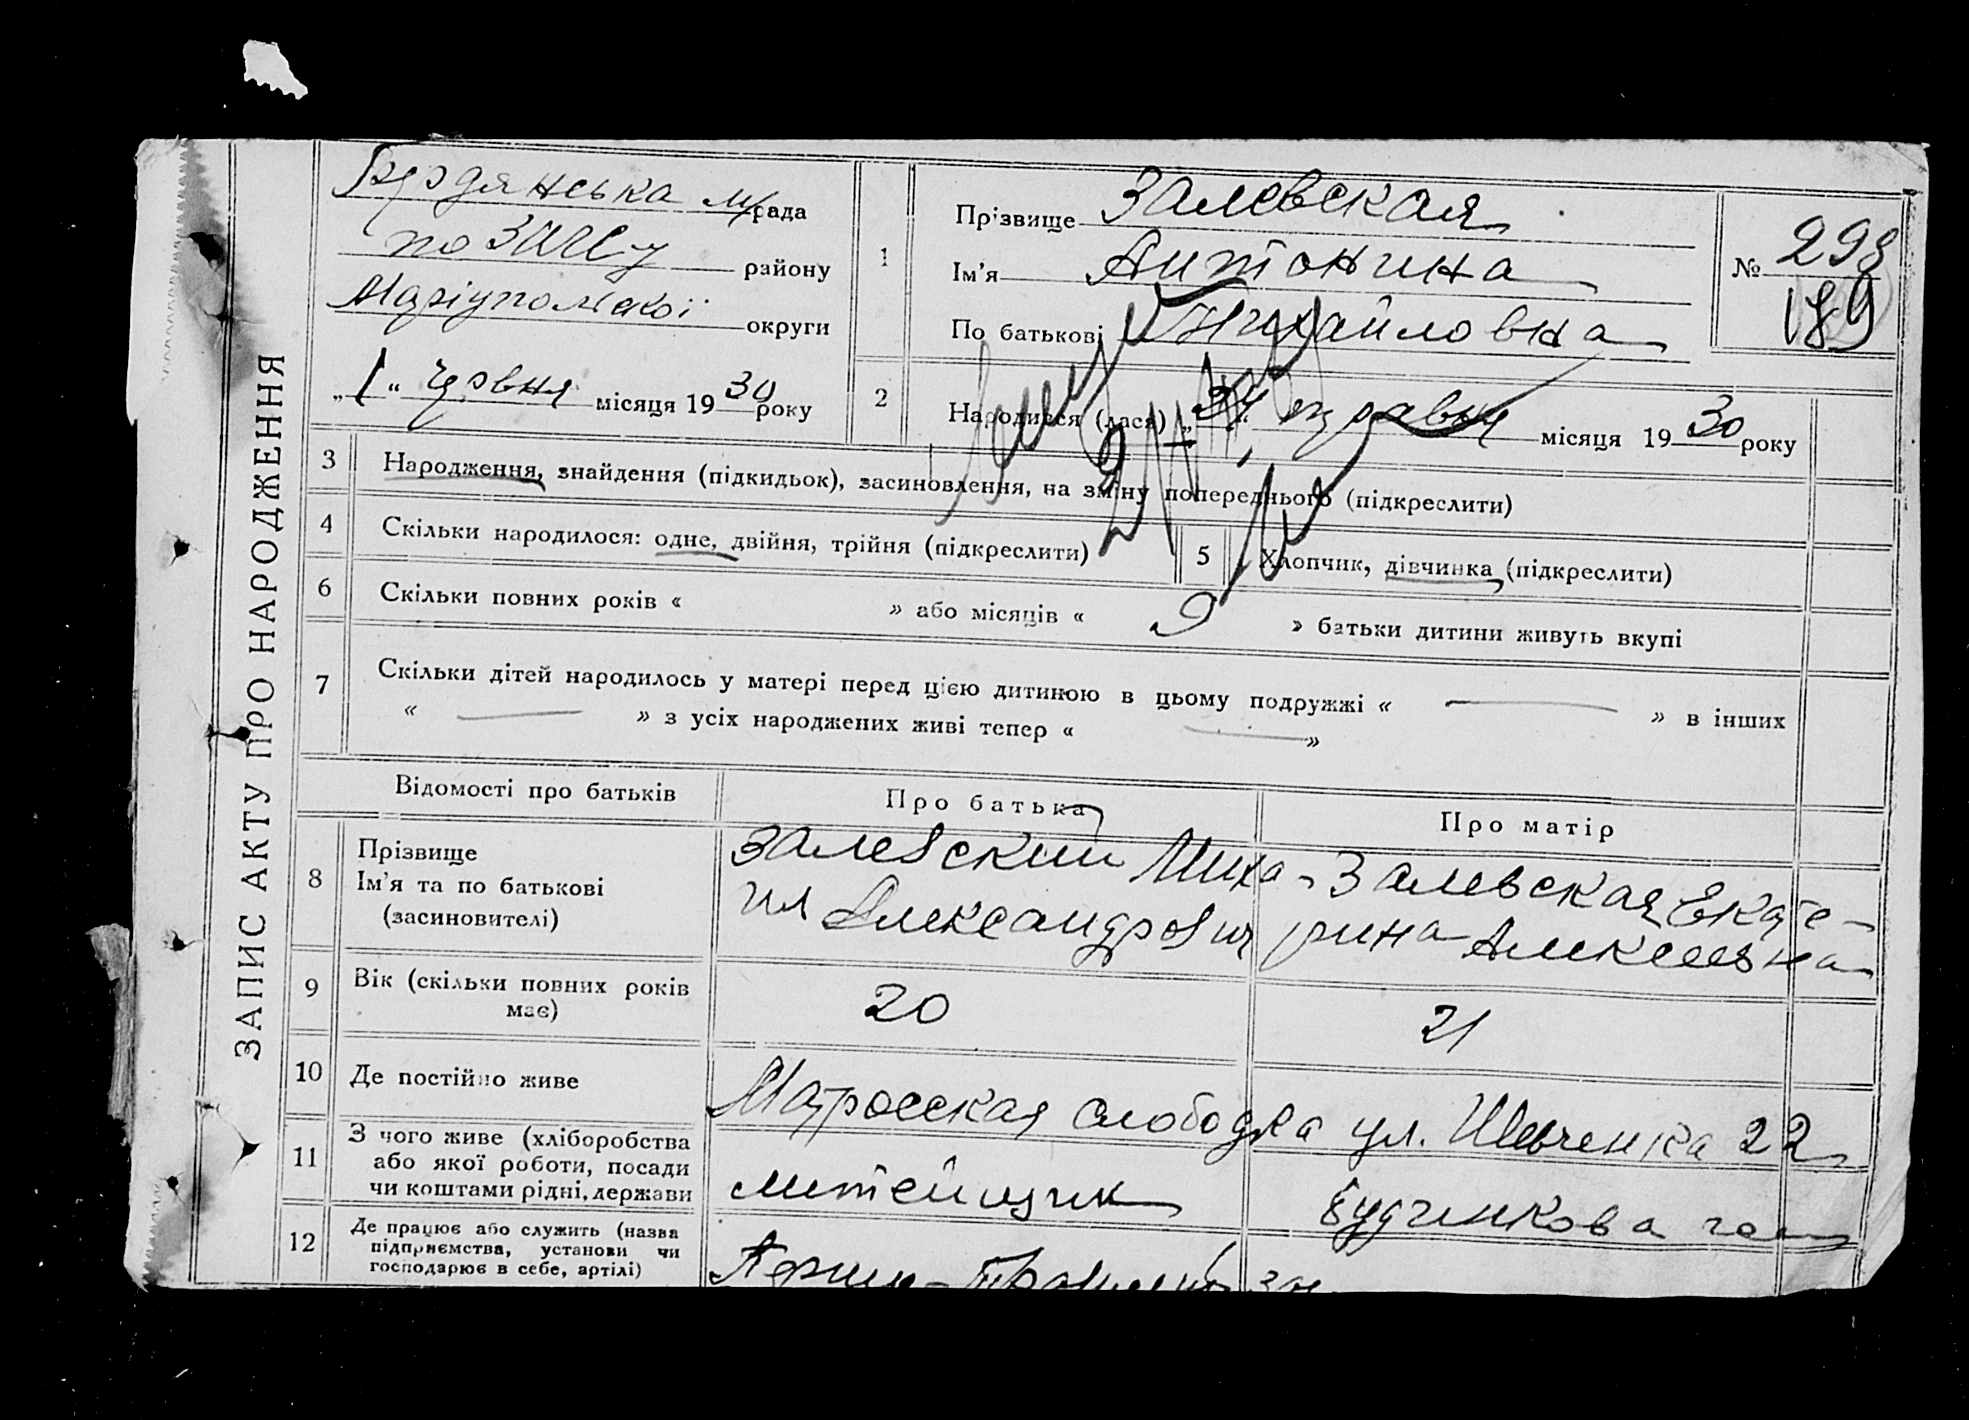 ЗАПИС АКТУ ПРО НАРОДЖЕННЯ
Бердянська м/рада
по ЗАГСу району
Маріупольської округи
„1“ червня місяця 1930 року
1
Прізвище Залевская
Ім'я Антонина
По батькові Михайловна
№ 298
189
2
Народився (лася) травня місяця 1930 року
3 Народження, знайдення (підкидьок), засиновлення, на зміну попереднього (підкреслити)
4 Скільки народилося: одне, двійня, трійня (підкреслити)
5 Хлопчик, дівчинка (підкреслити)
6 Скільки повних років « » або місяців « 9 » батьки дитини живуть вкупі
7 Скільки дітей народилось у матері перед цією дитиною в цьому подружжі « — » в інших
« — » з усіх народжених живі тепер « — »
Відомості про батьків
Про батька
Про матір
8 Прізвище
Ім'я та по батькові
(засиновителі)
Залевский Миха-
ил Александрович
Залевская Екате-
рина Алексеевна
9 Вік (скільки повних років
має)
20
21
10 Де постійно живе
Матросская слободка ул. Шевченка 22
11 З чого живе (хліборобства
або якої роботи, посади
чи коштами рідні, держави
литейщик
12 Де працює або служить (назва
підприємства, установи чи
господарює в себе, артілі)